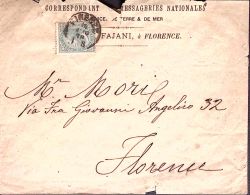 CORRESPONDANT MESSAGERIES NATIONALES
TERRE & DE MER
FAJANI, à FLORENCE.
Mr. Mori
Via Fra Giovanni Angelico 32
Florence